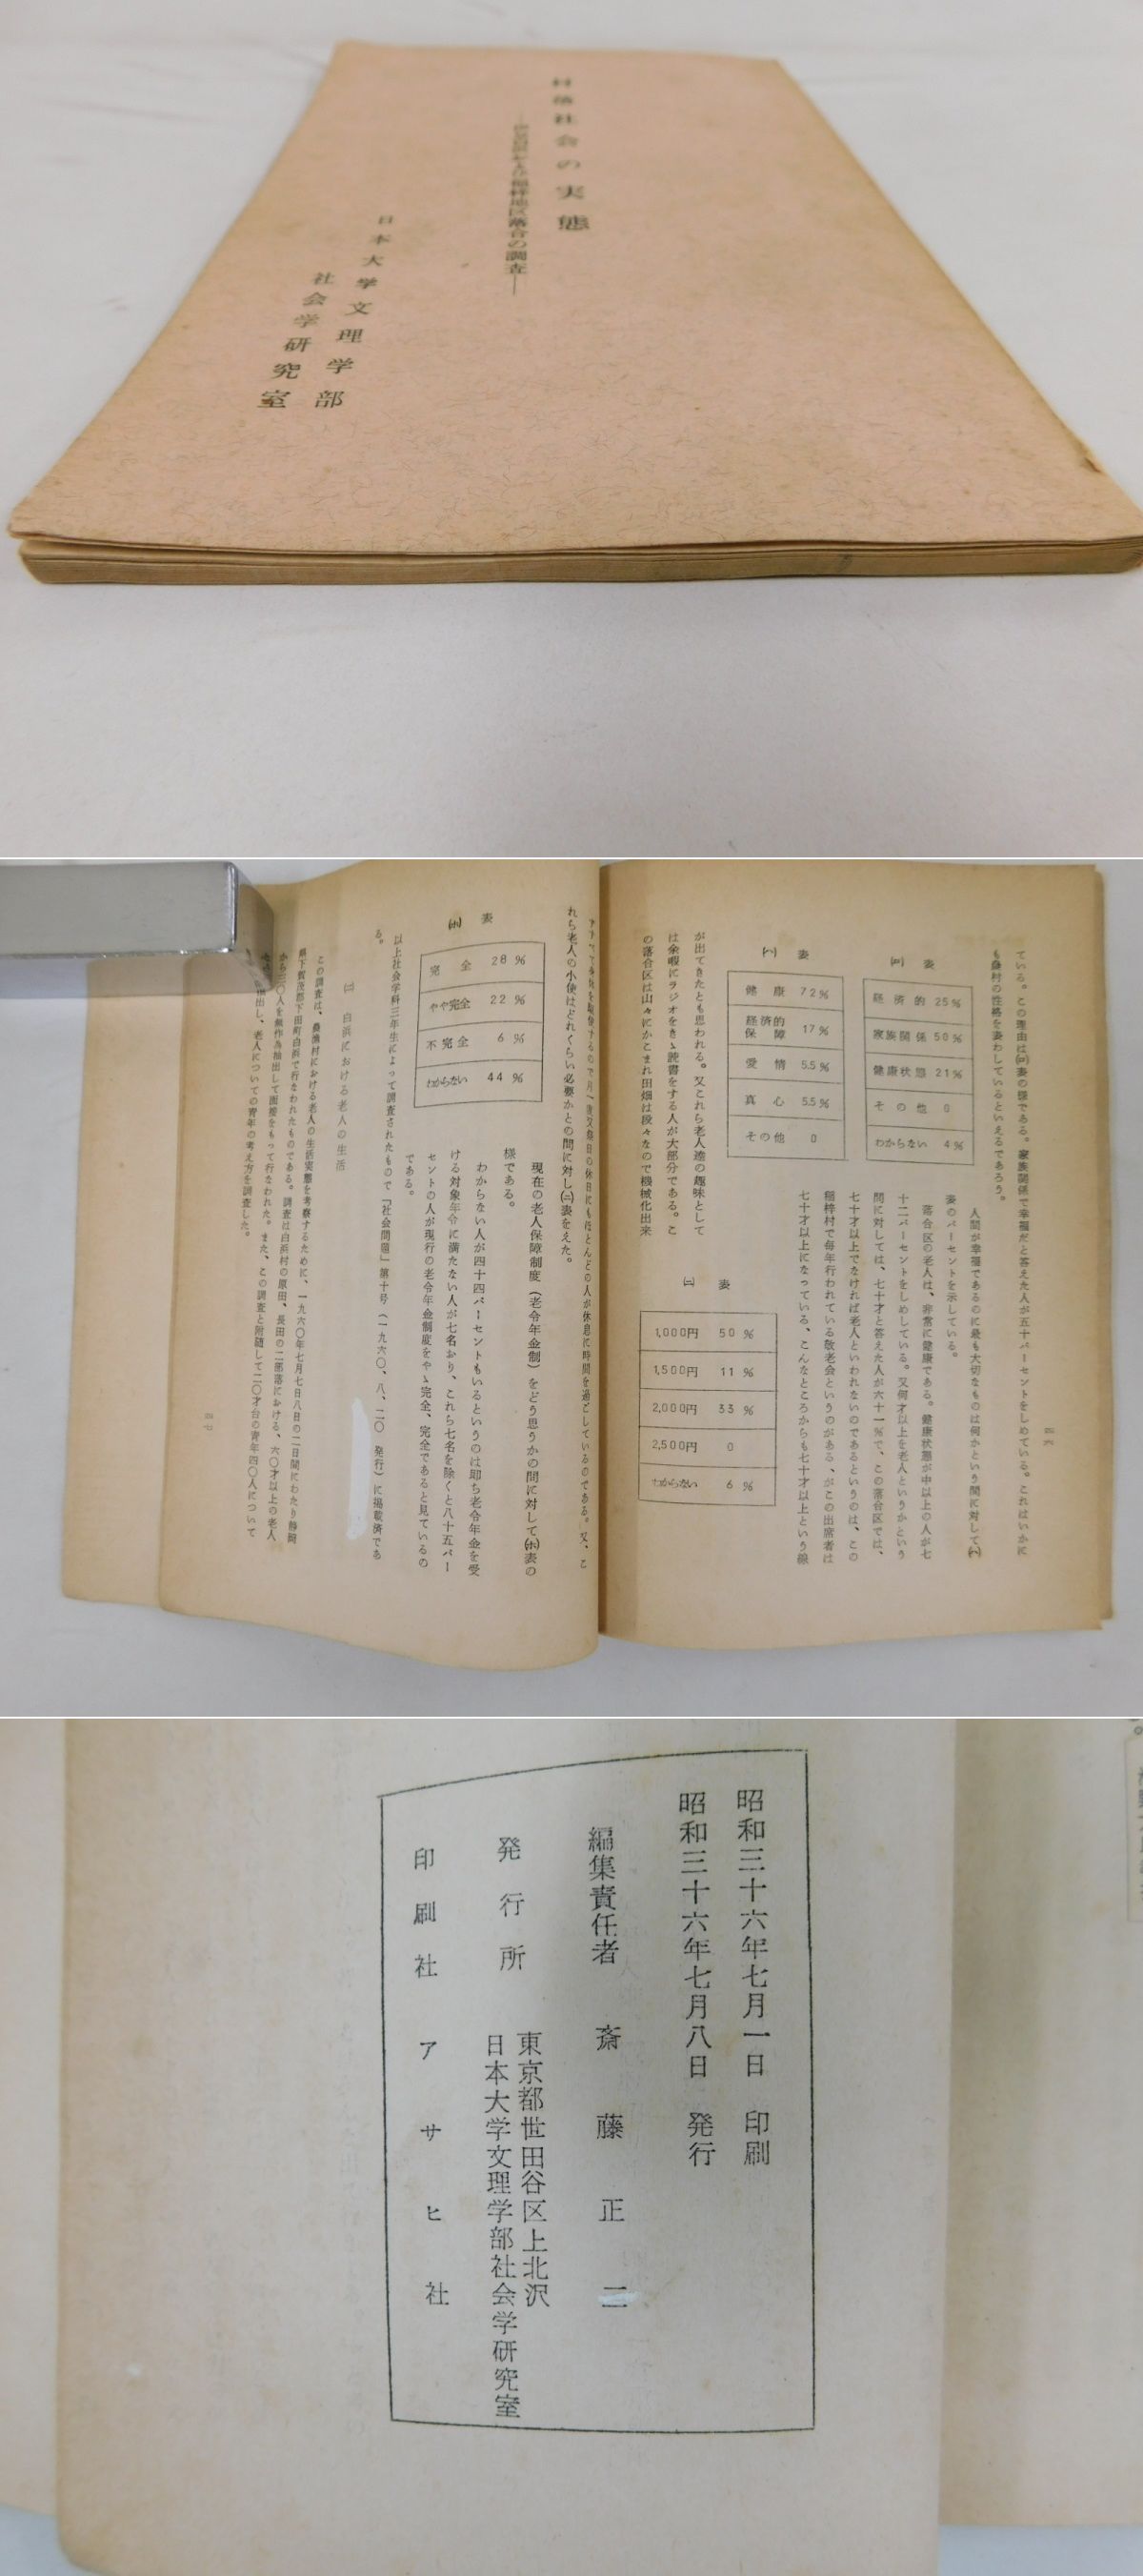 村落社会の実態
および稲梓地区落合の調査―
日本大学文理学部
社会学研究室
ている。この理由は㈺表の様である。家族関係で幸福だと答えた人が五十パーセントをしめている。これはいかに
も農村の性格を表わしているといえるであろう。
表
経済的 25%
家族関係 50%
健康状態 21%
その他 0
わからない 4%
人間が幸福であるのに最も大切なものは何かという問に対して
表のパーセントを示している。
落合区の老人は、非常に健康である。健康状態が中以上の人が七
十二パーセントをしめている。又何才以上を老人というかという
問に対しては、七十才と答えた人が六十一%で、この落合区では、
七十才以上でなければ老人といわれないのであるというのは、この
稲梓村で毎年行われている敬老会というのがある、がこの出席者は
七十才以上になっている、こんなところからも七十才以上という線
表
健康 72%
経済的保障 17%
愛情 5.5%
真心 5.5%
その他 0
が出てきたとも思われる。又これら老人達の趣味として
は余暇にラジオをきゝ読書をする人が大部分である。こ
の落合区は山々にかこまれ田畑は段々なので機械化出来
㈡ 表
1,000円 50%
1,500円 11%
2,000円 33%
2,500円 0
わからない 6%
四六
月一度又祭日の休日にもほとんどの人が休息に時間を過ごしているのである。又、こ
れら老人の小使はどれくらい必要かとの問に対し㈡表をえた。
現在の老人保障制度（老令年金制）をどう思うかの問に対して㈭表の
様である。
わからない人が四十四パーセントもいるというのは即ち老令年金を受
ける対象年令に満たない人が七名おり、これら七名を除くと八十五パー
セントの人が現行の老令年金制度をやゝ完全、完全であると見ているの
である。
㈭ 表
完全 28%
やや完全 22%
不完全 6%
わからない 44%
以上社会学科三年生によって調査されたもので「社会問題」第十号（一九六〇、八、二〇 発行）に掲載済であ
る。
白浜における老人の生活
この調査は、農漁村における老人の生活実態を考察するために、一九六〇年七月七日八日の二日間にわたり静岡
県下賀茂郡下田町白浜で行なわれたものである。調査は白浜村の原田、長田の二部落における、六〇才以上の老人
から三〇人を無作為抽出して面接をもって行なわれた。また、この調査と附随して二〇才台の青年四〇人について
抽出し、老人についての青年の考え方を調査した。
四七
昭和三十六年七月一日 印刷
昭和三十六年七月八日 発行
編集責任者 斎藤正二
発行所 東京都世田谷区上北沢
日本大学文理学部社会学研究室
印刷社 アサヒ社